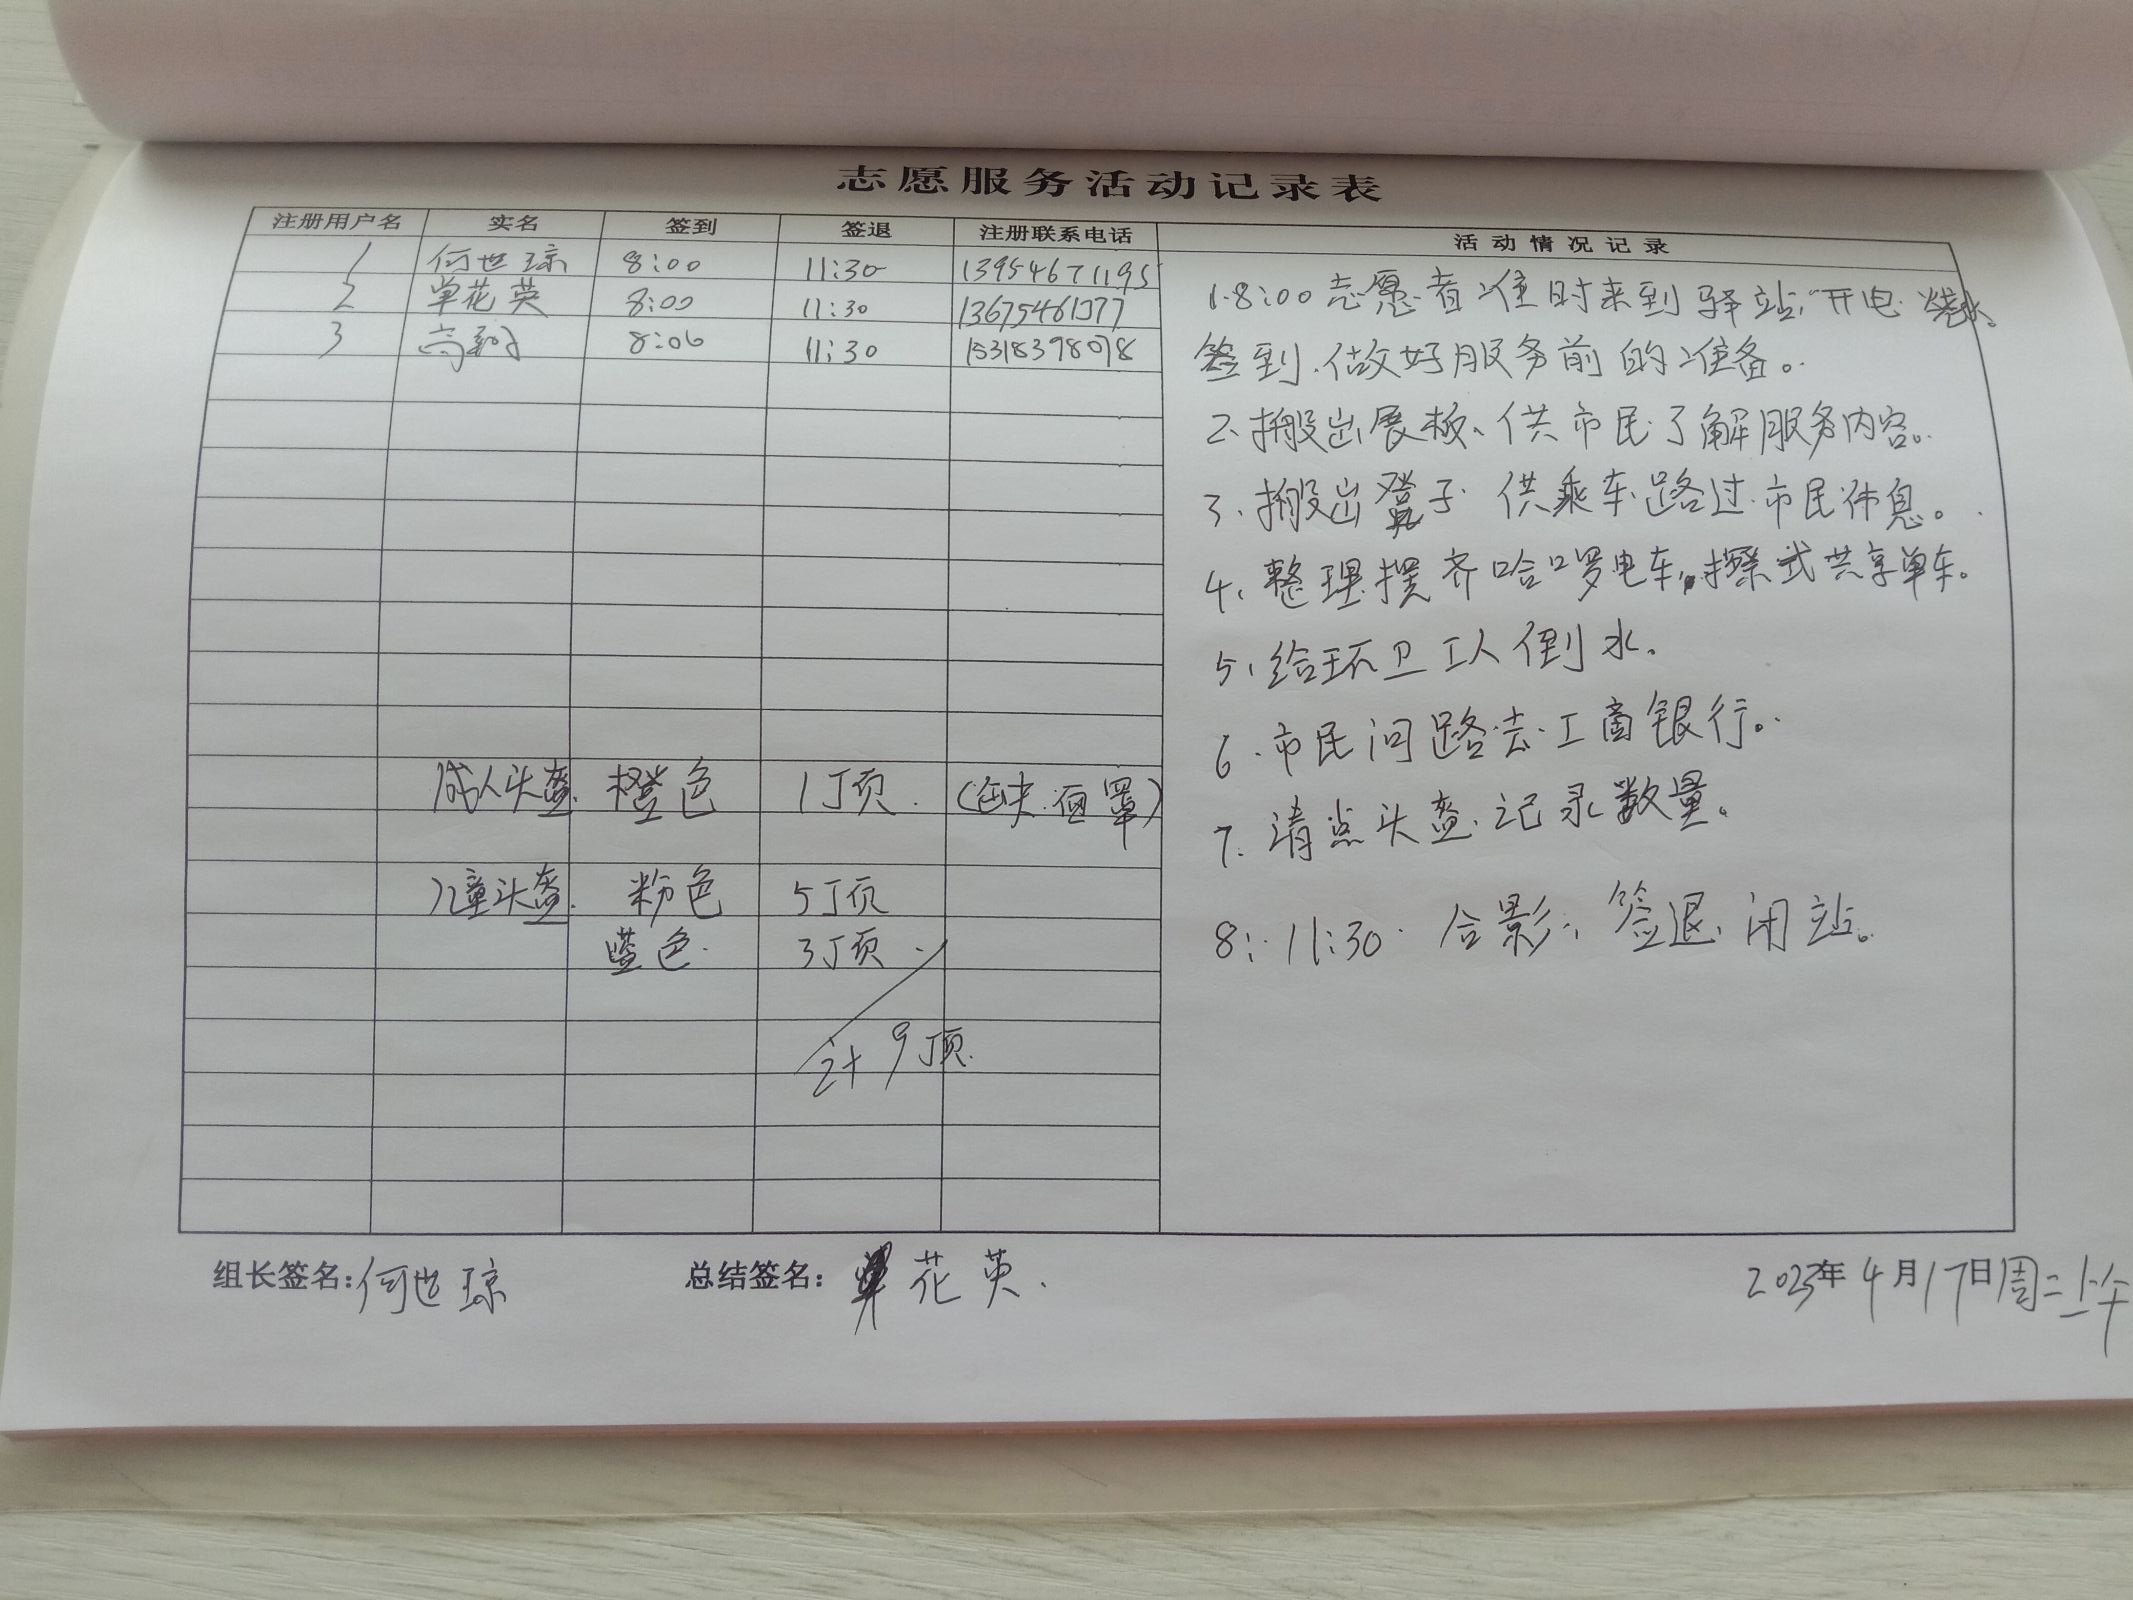 志愿服务活动记录表
注册用户名 实名 签到 签退 注册联系电话 活动情况记录
1 何世琼 8:00 11:30 13954671195
2 单花英 8:00 11:30 13675461377
3 高 8:06 11:30 15318398078
1.8:00志愿者准时来到驿站,开电、烧水、
签到、做好服务前的准备。
2、搬出展板、供市民了解服务内容。
3、搬出凳子 供乘车路过市民休息。
4、整理摆齐哈啰电车,擦拭共享单车。
5、给环卫工人倒水。
6、市民问路去工商银行。
7、清点头盔、记录数量。
8:11:30 合影、签退、闭站。
成人头盔 橙色 1顶 (缺面罩)
儿童头盔 粉色 5顶
蓝色 3顶
计9顶
组长签名:何世琼 总结签名:单花英 2023年4月17日周二上午